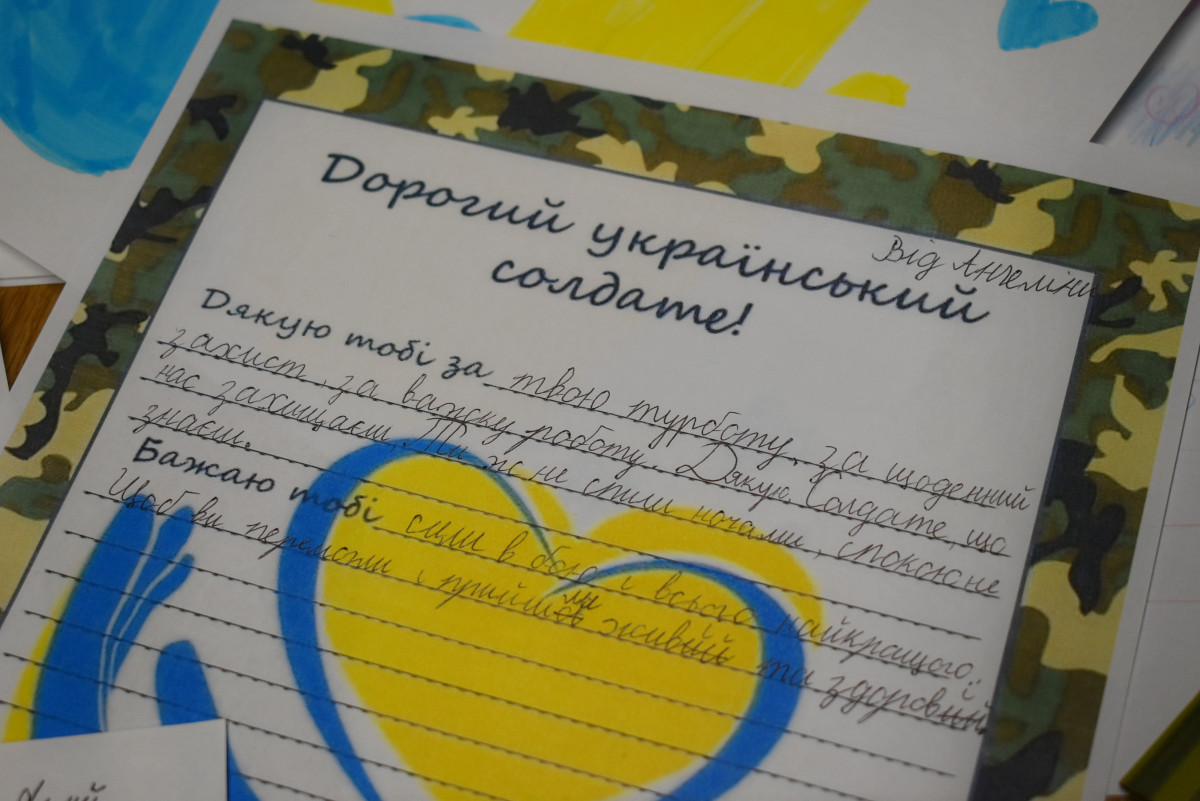 Дорогий український
солдате!
Від Ангеліни
Дякую тобі за твою турботу, за щоденний
захист, за важку роботу. Дякую. Солдате, що
нас захищаєш. Ти ж не спиш ночами, спокою не
знаєш.
Бажаю тобі сили в бою і всього найкращого.
Щоб ви перемогли і прийшли живі та здорові